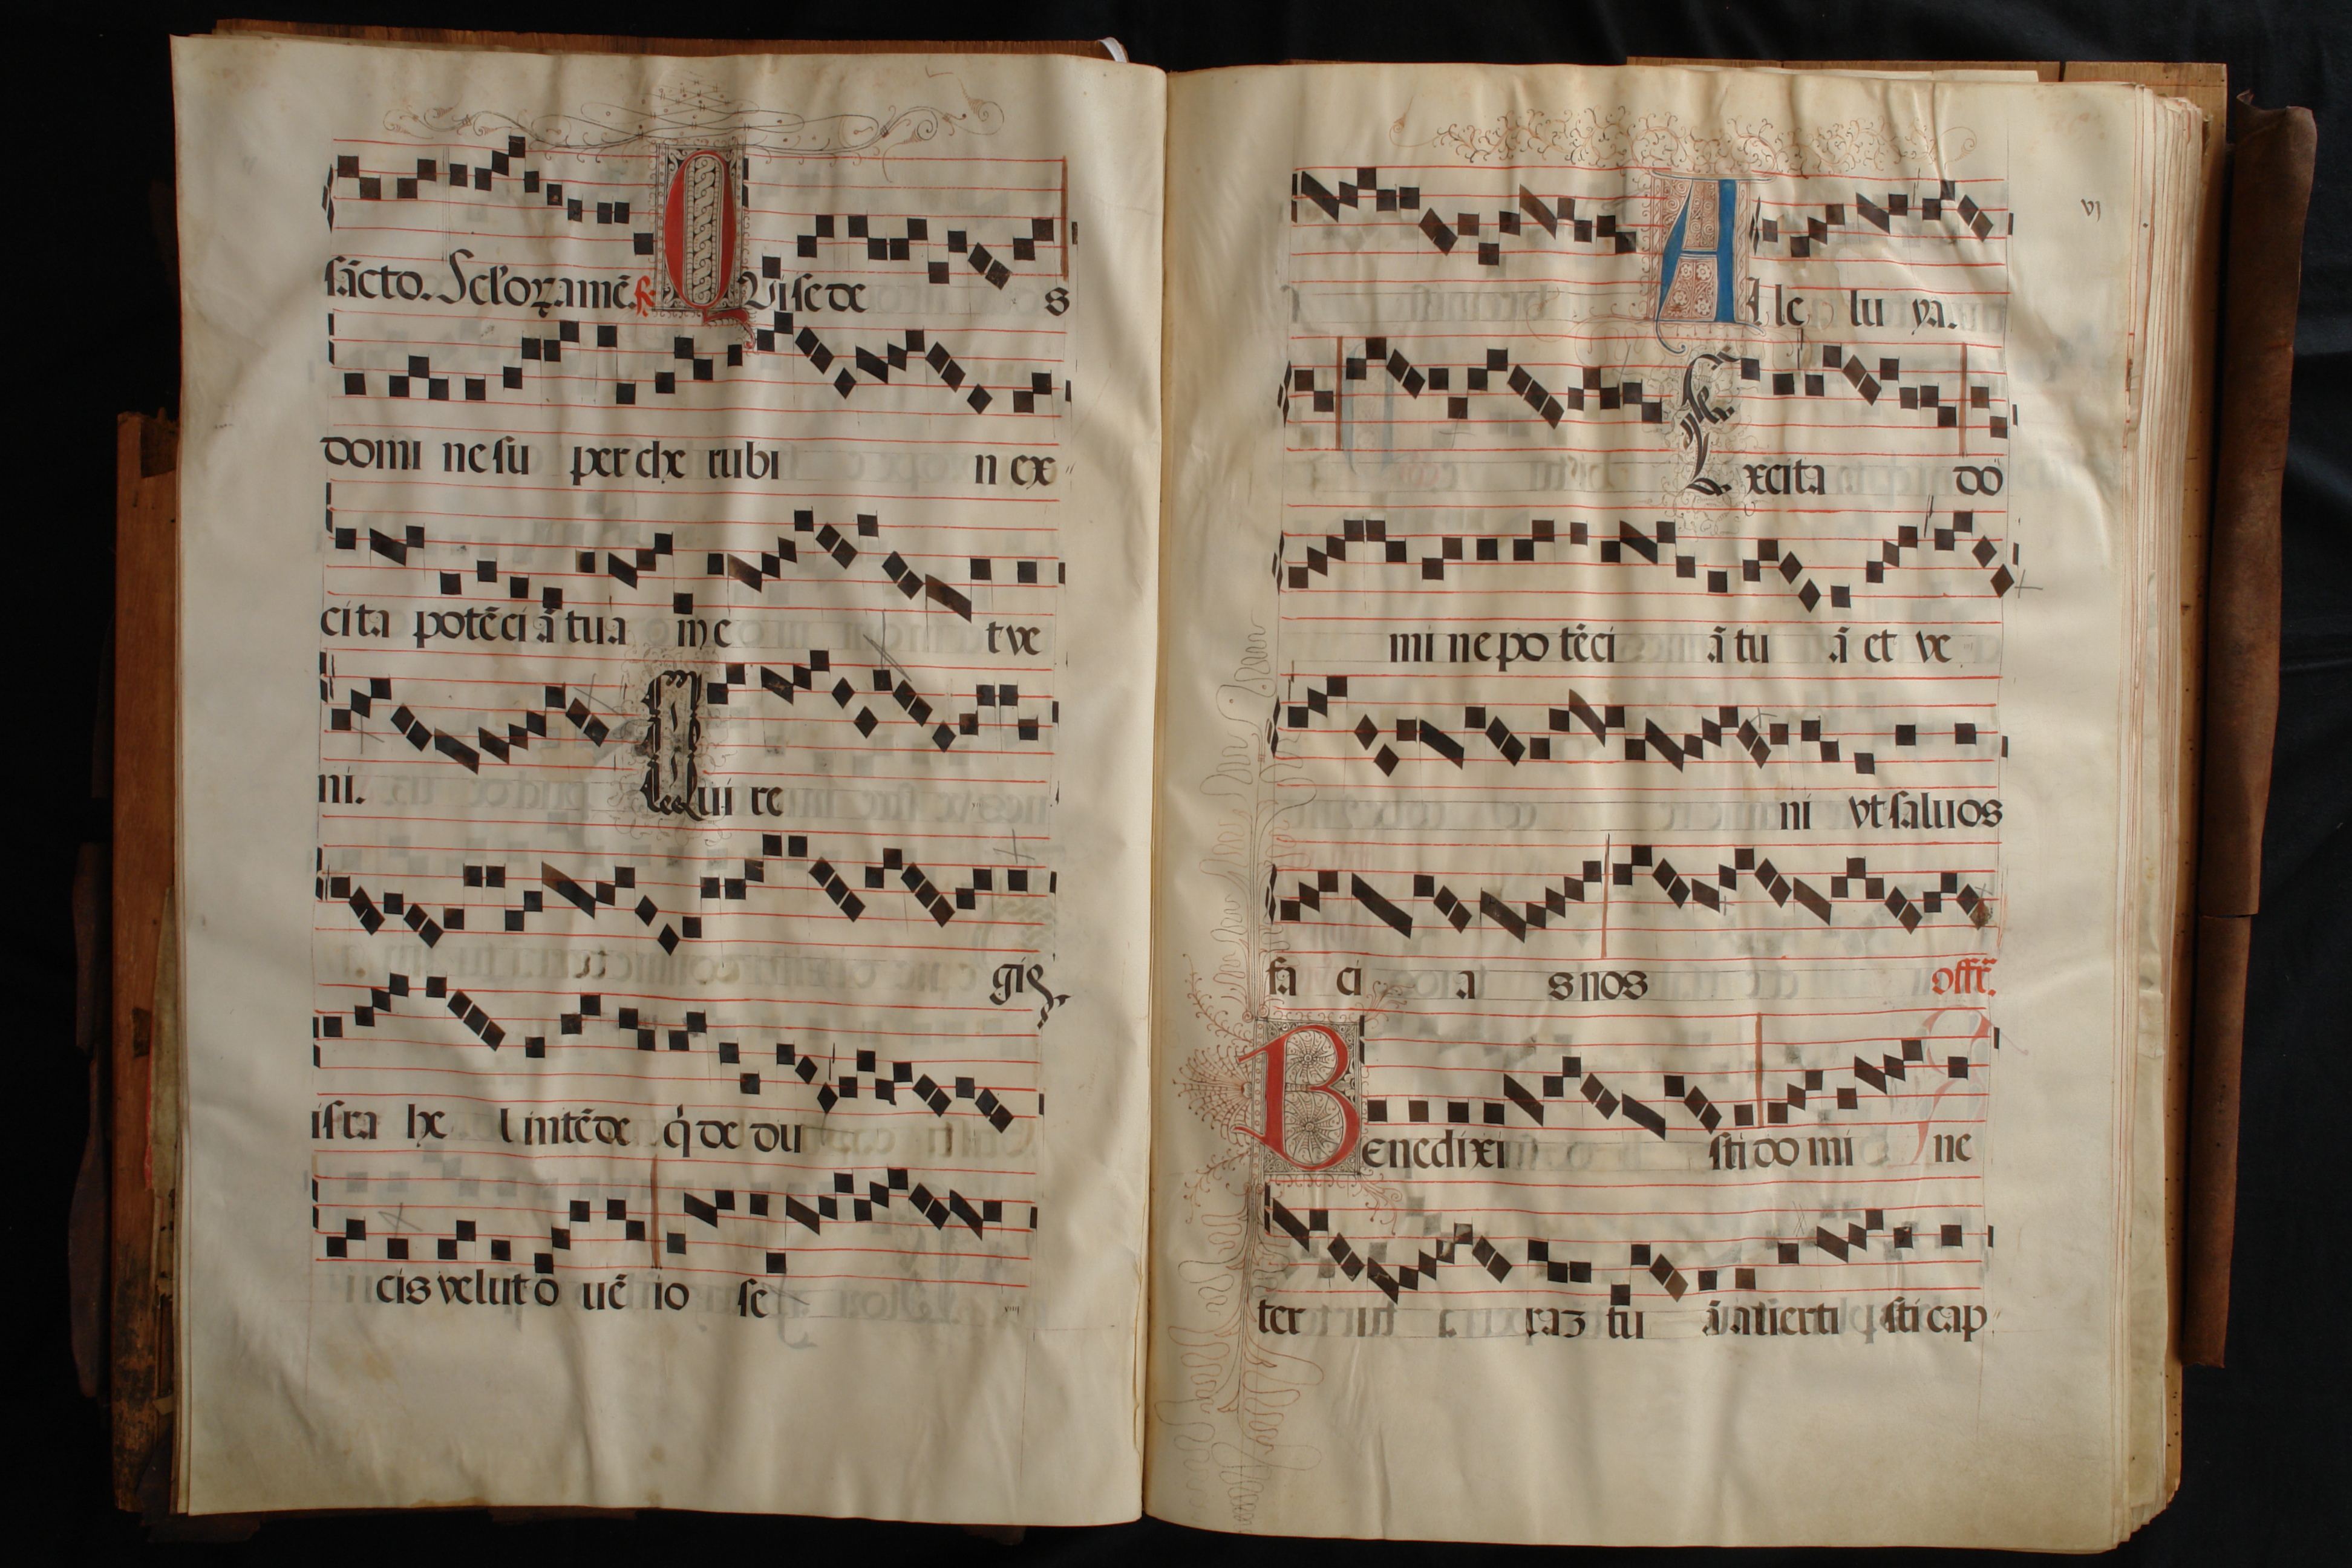 sācto. Scl'oꝝ. amē. ℟. QUi sede s
domi ne su per che rubi n ex
cita potēci ā tua m e t ve
ni. Qui re
gis.
isra he l intēde q̇ de du
cis velut o uē io se
viiij
vj
A le lu ya.
℣. Excita do
mi ne po tēci ā tu ā et ve
ni vt saluos
fa ci a s nos offr̄.
Benedixi sti do mi ne
ter ra᷒ tu ā auerti sti cap